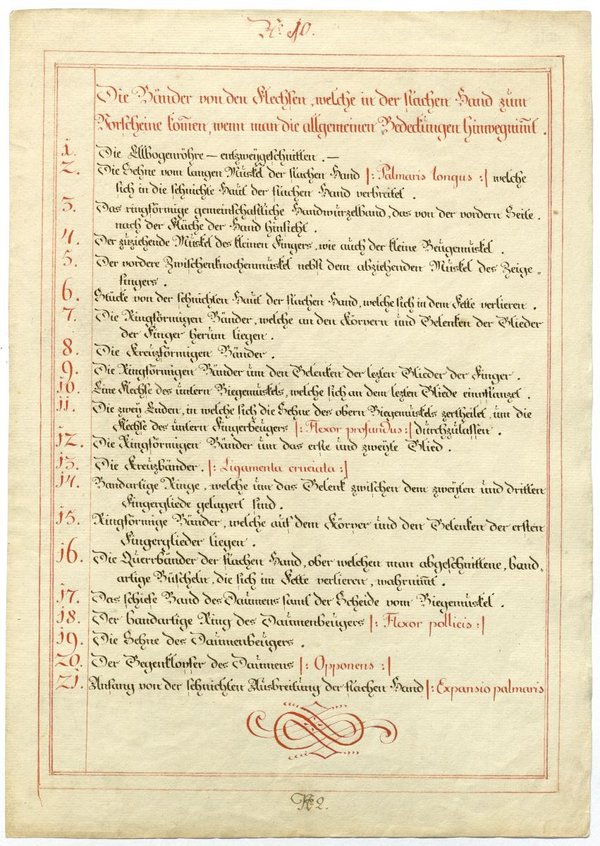 Nr. 10.
Die Bänder von den Flechsen, welche in der flachen Hand zum
Vorscheine kom̄en, wenn man die allgemeinen Bedeckungen hinwegnim̄t.
1. Die Ellbogenröhre – entzweygeschnitten. –
2. Die Sehne vom langen Muskel der flachen Hand |: Palmaris longus :| welche
sich in die sehnichte Haut der flachen Hand verbreitet.
3. Das ringförmige gemeinschaftliche Handwurzelband, das von der vordern Seite
nach der Fläche der Hand hinsieht.
4. Der zuziehende Muskel des kleinen Fingers, wie auch der kleine Beugemuskel.
5. Der vordere Zwischenknochenmuskel nebst dem abziehenden Muskel des Zeige-
fingers.
6. Stücke von der sehnichten Haut der flachen Hand, welche sich in dem Fette verlieren.
7. Die Ringförmigen Bänder, welche an den Körpern und Gelenken der Glieder
der Finger herum liegen.
8. Die Kreuzförmigen Bänder.
9. Die Ringförmigen Bänder um den Gelenken der lezten Glieder der Finger.
10. Eine Flechse des untern Biegemuskels, welche sich an dem lezten Gliede einpflanzet.
11. Die zwey Enden, in welche sich die Sehne des obern Biegemuskels zertheilet, um die
Flechse des untern Fingerbeugers |: Flexor profundus :| durchzulassen.
12. Die Ringförmigen Bänder um das erste und zweyte Glied.
13. Die Kreuzbänder. |: Ligamenta cruciata :|
14. Bandartige Ringe, welche um das Gelenk zwischen dem zweyten und dritten
Fingergliede gelagert sind.
15. Ringförmige Bänder, welche auf dem Körper und den Gelenken der ersten
Fingerglieder liegen.
16. Die Querrbänder der flachen Hand, ober welchen man abgeschnittene, band-
artige Büscheln, die sich im Fette verlieren, wahrnim̄t.
17. Das schiefe Band des Daumens samt der Scheide vom Biegemuskel.
18. Der bandartige Ring des Daumenbeugers |: Flexor pollicis :|
19. Die Sehne des Daumenbeugers.
20. Der Gegensteller des Daumens |: Opponens :|
21. Anfang von der sehnichten Ausbreitung der flachen Hand |: Expansio palmaris
Nr. 2.